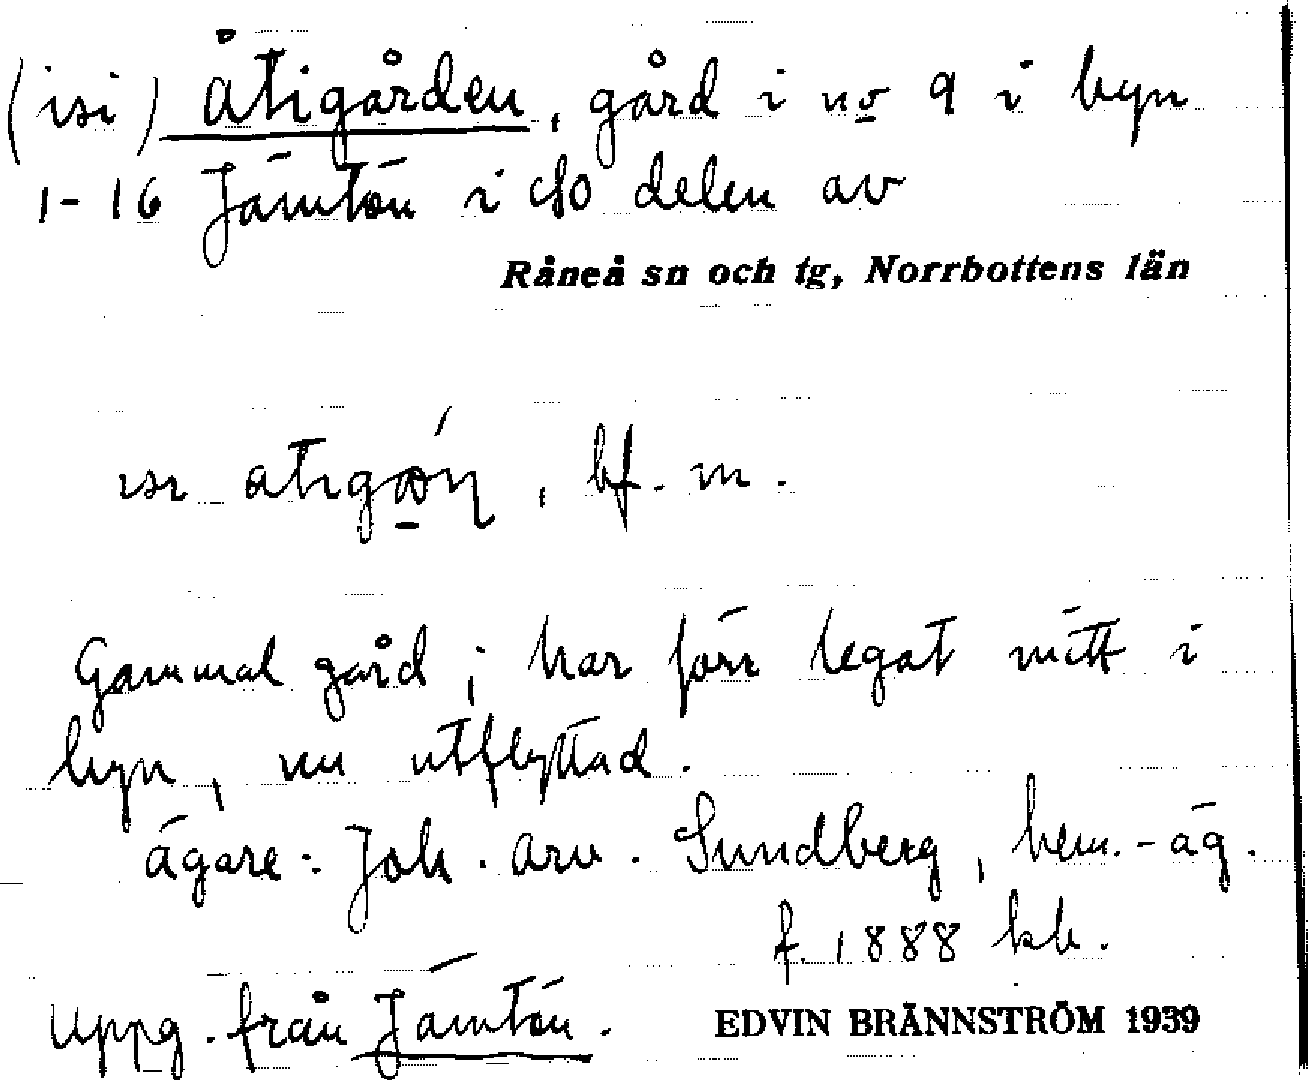 (isi) Åtigården, gård i no 9 i byn
1-16 Jämtön i SO delen av
Råneå sn och tg, Norrbottens län
isi , bf. m.
Gammal gård; har förr legat mitt i
byn, nu utflyttad.
ägare: Joh. Arv. Sundberg, hem.-äg.
f. 1888 kb.
Uppg. från Jämtön.
EDVIN BRÄNNSTRÖM 1939